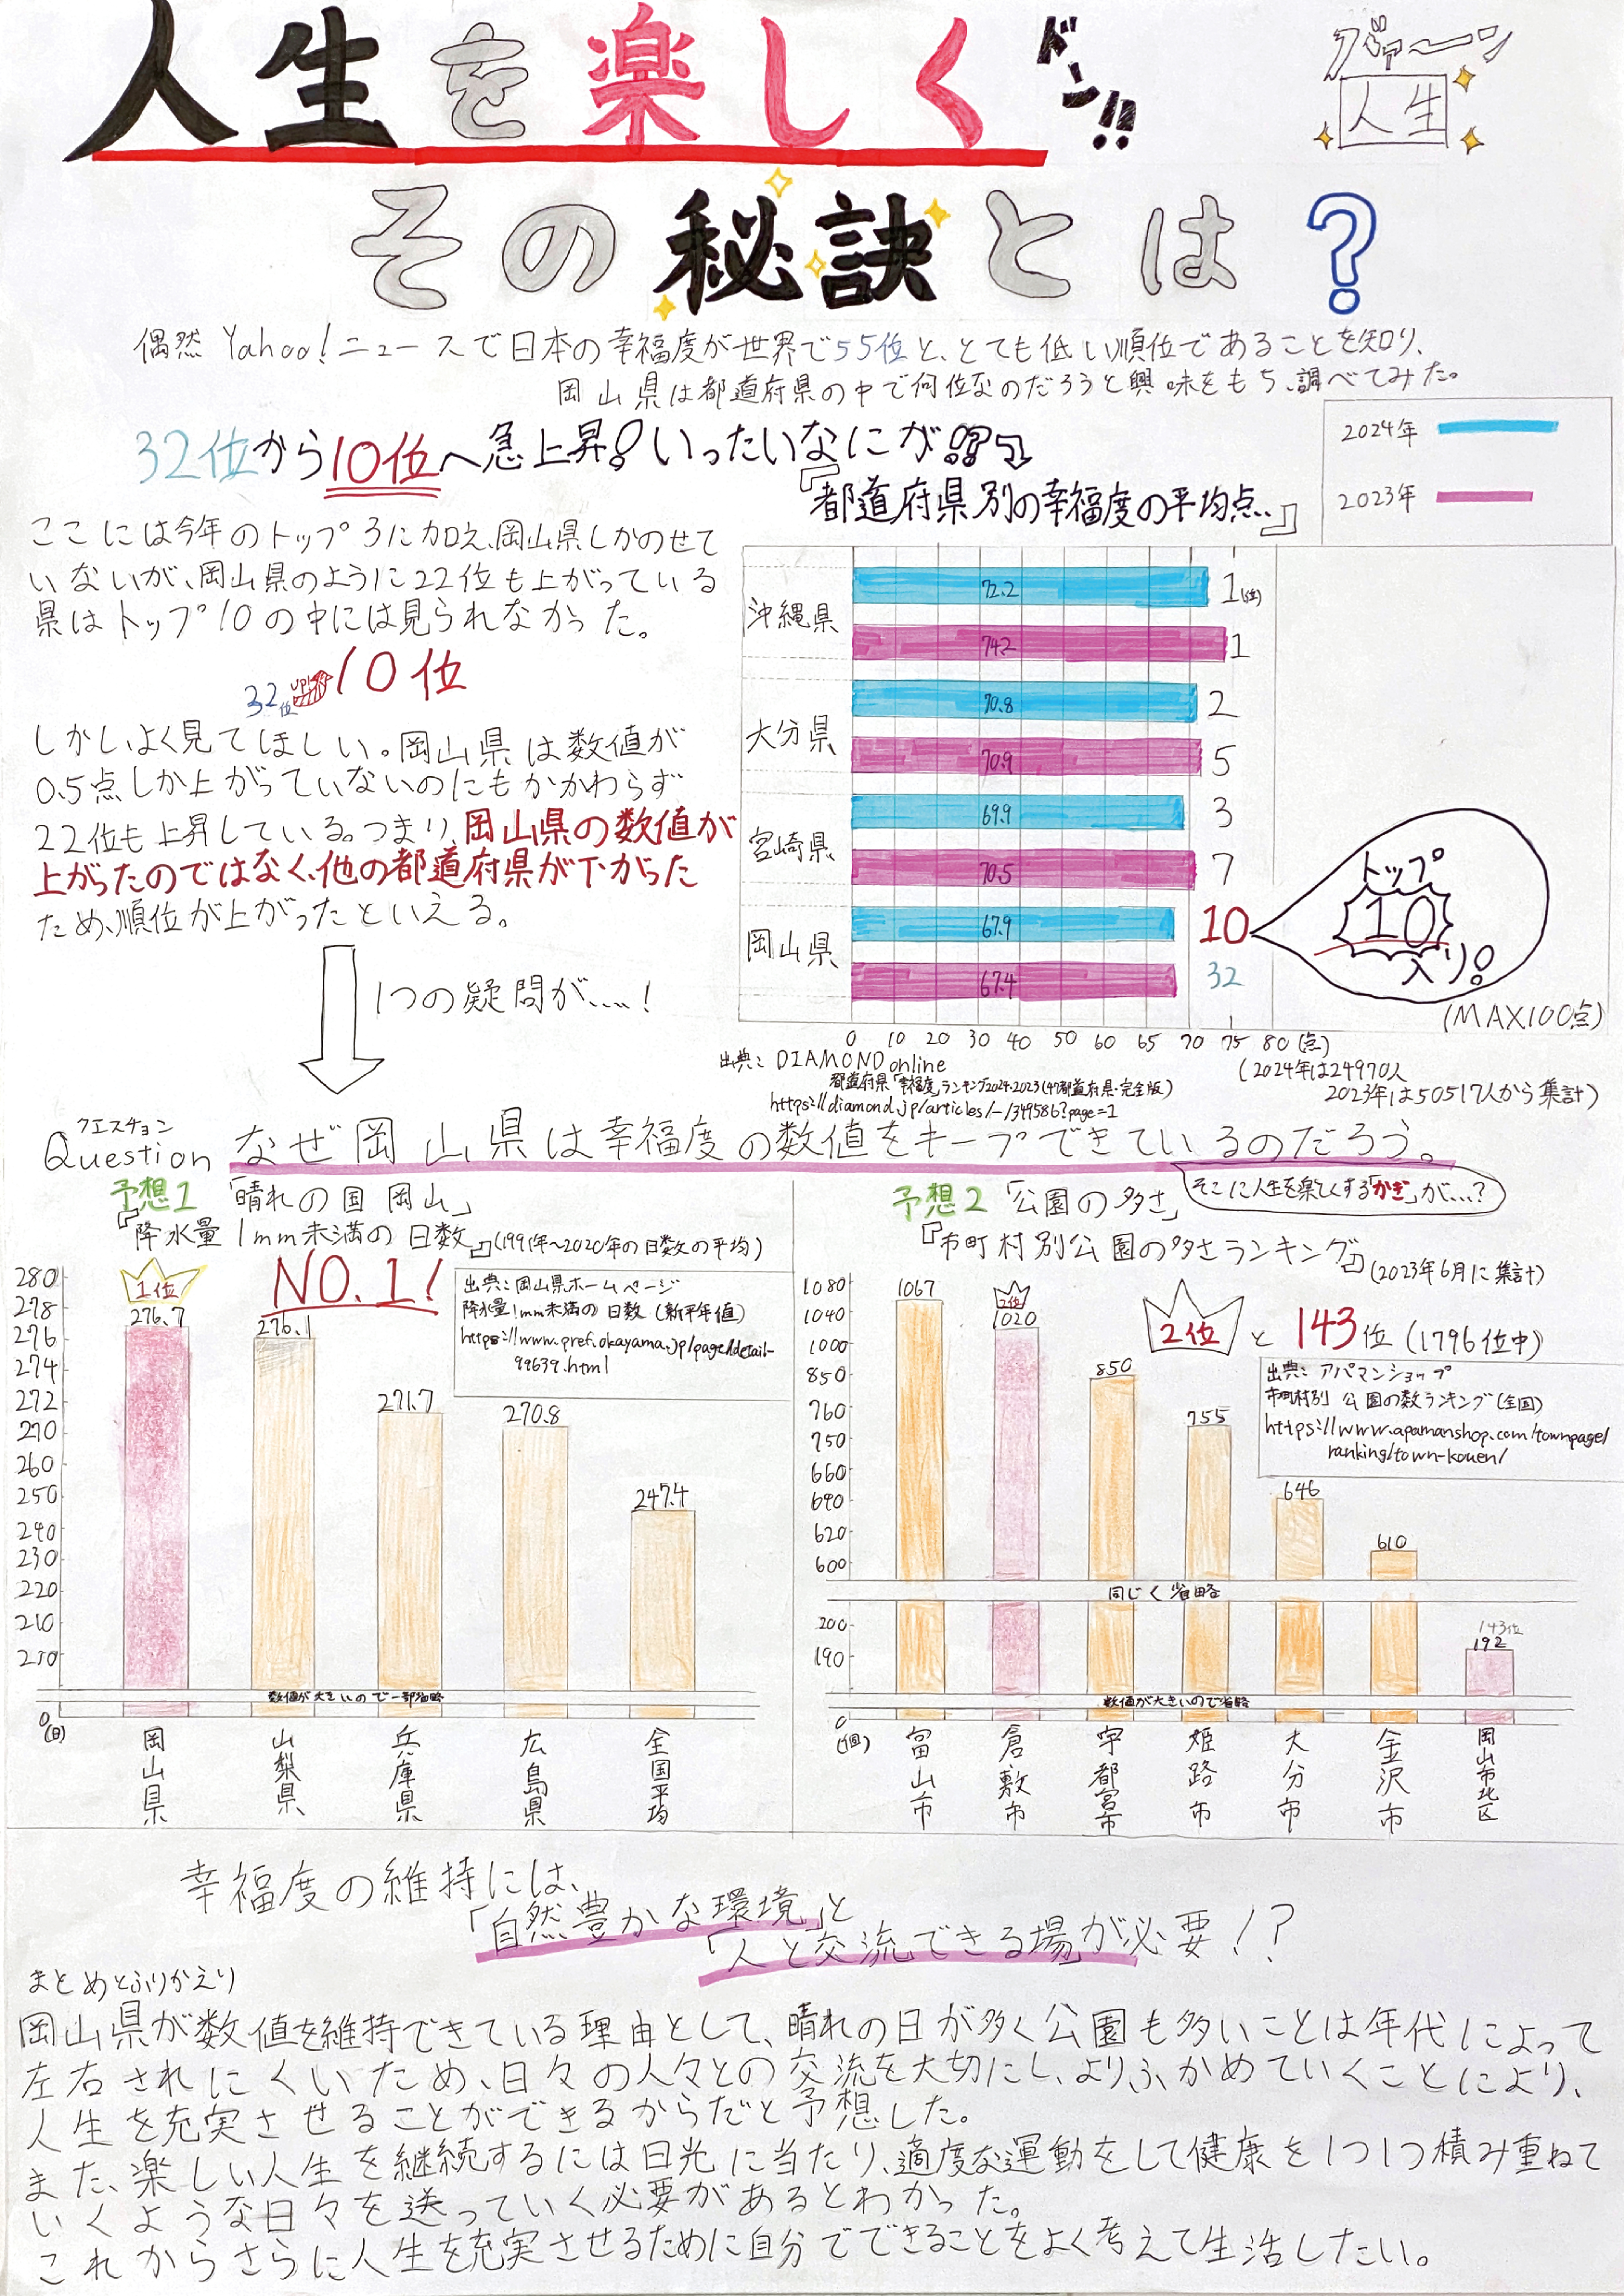 人生を楽しく
ドン!!
グァーン
人生
その秘訣とは?
偶然 Yahoo!ニュースで日本の幸福度が世界で55位と、とても低い順位であることを知り、
岡山県は都道府県の中で何位なのだろうと興味をもち、調べてみた。
32位から10位へ急上昇!いったいなにが!?
2024年
2023年
『都道府県別の幸福度の平均点..』
ここには今年のトップ3に加え、岡山県しかのせて
いないが、岡山県のように22位も上がっている
県はトップ10の中には見られなかった。
32位 UP! 10位
しかし、よく見てほしい。岡山県は数値が
0.5点しか上がっていないのにもかかわらず
22位も上昇している。つまり、岡山県の数値が
上がったのではなく、他の都道府県が下がった
ため、順位が上がったといえる。
1つの疑問が....!
沖縄県
72.2 1(位)
74.2 1
大分県
70.8 2
70.9 5
宮崎県
69.9 3
70.5 7
岡山県
67.9 10
67.4 32
トップ
10
入り!
(MAX100点)
0 10 20 30 40 50 60 65 70 75 80 (点)
出典:DIAMOND online
都道府県「幸福度」ランキング2024・2023(47都道府県・完全版)
https://diamond.jp/articles/-/349586?page=1
(2024年は24970人
2023年は50517人から集計)
クエスチョン
Question なぜ岡山県は幸福度の数値をキープできているのだろう。
そこに人生を楽しくする「かぎ」が....?
予想1 「晴れの国 岡山」
『降水量1mm未満の日数』(1991年~2020年の日数の平均)
NO.1!
出典:岡山県ホームページ
降水量1mm未満の日数(新平年値)
https://www.pref.okayama.jp/page/detail-
99639.html
280
278
276
274
272
270
260
250
240
230
220
210
210
0
(日)
1位
276.7
276.1
271.7
270.8
247.4
数値が大きいので一部省略
岡山県
山梨県
兵庫県
広島県
全国平均
予想2 「公園の多さ」
『市町村別公園の多さランキング』(2023年6月に集計)
2位と143位(1796位中)
出典:アパマンショップ
市町村別 公園の数ランキング(全国)
https://www.apamanshop.com/townpage/
ranking/town-kouen/
1080
1040
1000
850
760
750
660
640
620
600
200
190
0
(個)
1067
2位
1020
850
755
646
610
143位
192
同じく省略
数値が大きいので省略
富山市
倉敷市
宇都宮市
姫路市
大分市
金沢市
岡山市北区
幸福度の維持には、
「自然豊かな環境」と
「人と交流できる場」が必要!?
まとめとふりかえり
岡山県が数値を維持できている理由として、晴れの日が多く公園も多いことは年代によって
左右されにくいため、日々の人々との交流を大切にし、よりふかめていくことにより、
人生を充実させることができるからだと予想した。
また、楽しい人生を継続するには日光に当たり、適度な運動をして健康を1つ1つ積み重ねて
いくような日々を送っていく必要があるとわかった。
これからさらに人生を充実させるために自分でできることをよく考えて生活したい。